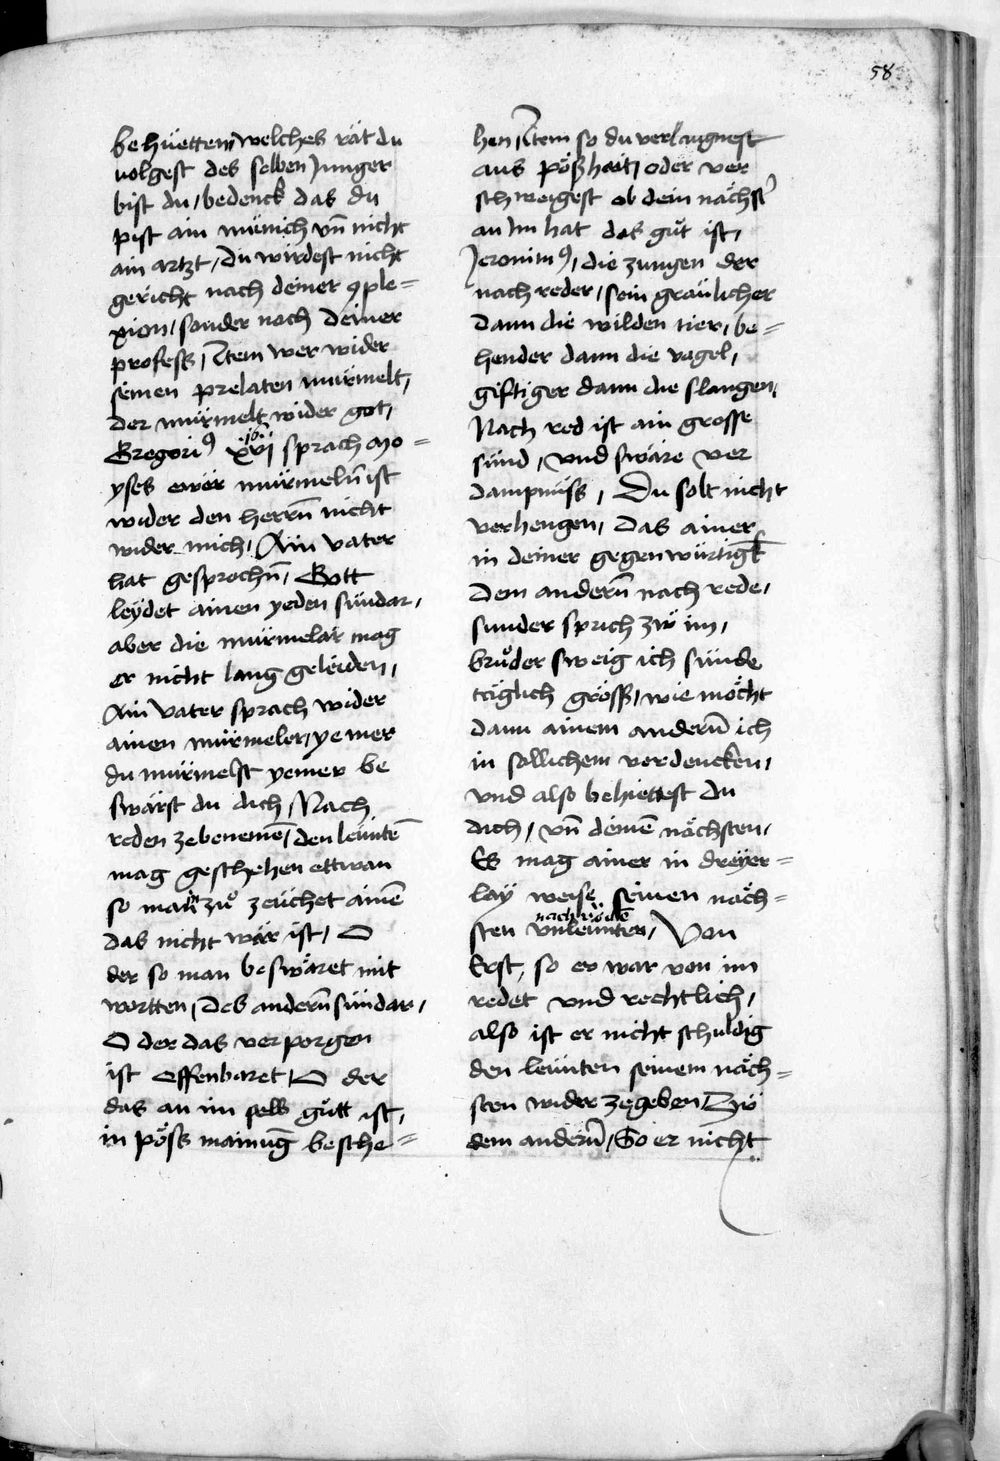 58
behüettem welches rät du
volgest des selben Junger
bist du / bedenck das du
pist ain münich vn̄ nicht
ain artzt / du wirdest nicht
gericht nach deiner ꝯple=
xion / sonder noch deiner
profess / Item wer wider
seinen prelaten murmelt /
der murmelt wider got /
Gregoriꝰ xvi sprach mo=
yses ewer murmeln̄ ist
wider den herrn̄ nicht
wider mich / Ain vater
hat gesprochn̄ / Gott
leydet ainen yeden sündar /
aber die murmelär mag
er nicht lang geleiden /
Ain vater sprach wider
ainen murmeler / ye mer
du murmelst ye mer be
swärst du dich / Nach
reden ze benemē / den leuntē
mag geschehen ettwan
so man zů zeüchet ainē
das nicht wär ist / O
der so man beswäret mit
wortten / des andern̄ sündar /
O der das verporgen
ist offenbaret / O der
das an im selb gütt ist /
in pöss mainūg besche=
hen / Item so du verlaugnest
aus pößhait / oder ver
schweigest ob dein nächst
an Im hat das gůt ist /
Jeronimꝰ / die zungen der
nachreder / sein gräulicher
dann die wilden tier / be=
hender dann die vogel /
giftiger dann die slangen /
Nach red ist ain grosse
sünd / vnd swäre ver
dampnüss / Du solt nicht
verhengen / das ainer
in deiner gegenwürtigk̄
dem andern̄ nach rede /
sunder sprich zw im /
brůder sweig ich sünde
täglich gröss / wie möcht
dann ainem andern̄ ich
in sollichem verdencken /
vnd also behiettest du
dich / vn̄ deinē nächsten /
Es mag ainer in dreyer=
lay weise seinen näch=
nachredē
sten vnleunten / Von
Erst / so er war von im
redet vnd rechtlich /
also ist er nicht schuldig
den leunten seinem näch=
sten wider zegeben / Zw
dem andern̄ / So er nicht